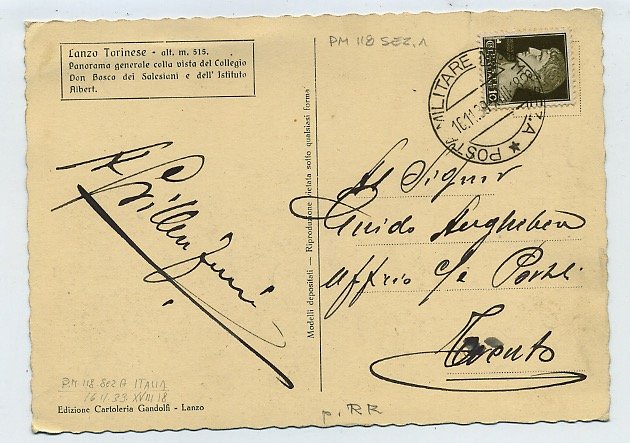 Lanzo Torinese - alt. m. 515.
Panorama generale colla vista del Collegio
Don Bosco dei Salesiani e dell' Istituto
Albert.
PM 118 SEZ. A
POSTA MILITARE
16.11.39
10
Al Signor
Guido
Ufficio c/c Postali
Trento
Modelli depositati — Riproduzione vietata sotto qualsiasi forma
PM 118 SEZ A ITALIA
16 11 39 XVIII 18
Edizione Cartoleria Gandolfi - Lanzo
p. RR